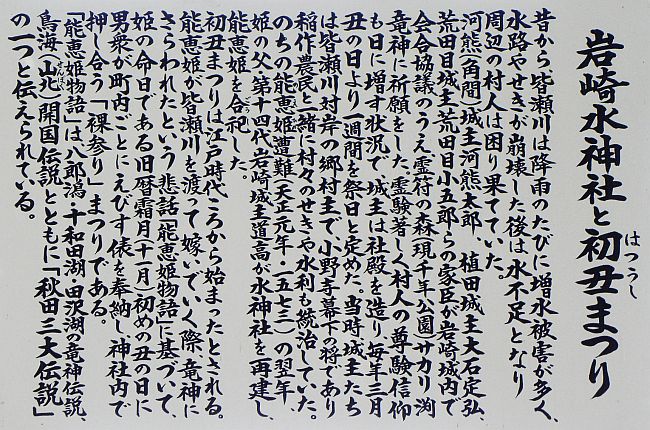 岩崎水神社と初丑まつり
はつうし
昔から皆瀬川は降雨のたびに増水被害が多く、
水路やせきが崩壊した後は水不足となり
周辺の村人は困り果てていた。
河熊(角間)城主河熊太郎、植田城主大石定弘、
荒田目城主荒田目小五郎らの家臣が岩崎城内で
会合協議のうえ霊符の森(現千年公園サカリ渕
竜神に祈願をした。霊験著しく村人の尊験信仰
も日に増す状況で、城主は社殿を造り毎年三月
丑の日より一週間を祭日と定めた。当時城主たち
は皆瀬川対岸の郷村主で、小野寺幕下の将であり
稲作農民と一緒に村々のせきや水利も統治していた。
のちの能恵姫遭難(天正元年・一五七三)の翌年、
姫の父、第十四代岩崎城主道高が水神社を再建し、
能恵姫を合祀した。
初丑まつりは江戸時代ころから始まったとされる。
能恵姫が皆瀬川を渡って嫁いでいく際、竜神に
さらわれたという悲話「能恵姫物語」に基づいて、
姫の命日である旧暦霜月(十一月)初めの丑の日に
男衆が町内ごとにえびす俵を奉納し神社内で
押し合う「裸参り」まつりである。
「能恵姫物語」は八郎潟・十和田湖・田沢湖の竜神伝説、
鳥海(山北)開国伝説とともに「秋田三大伝説」
せんぼく
の一つと伝えられている。